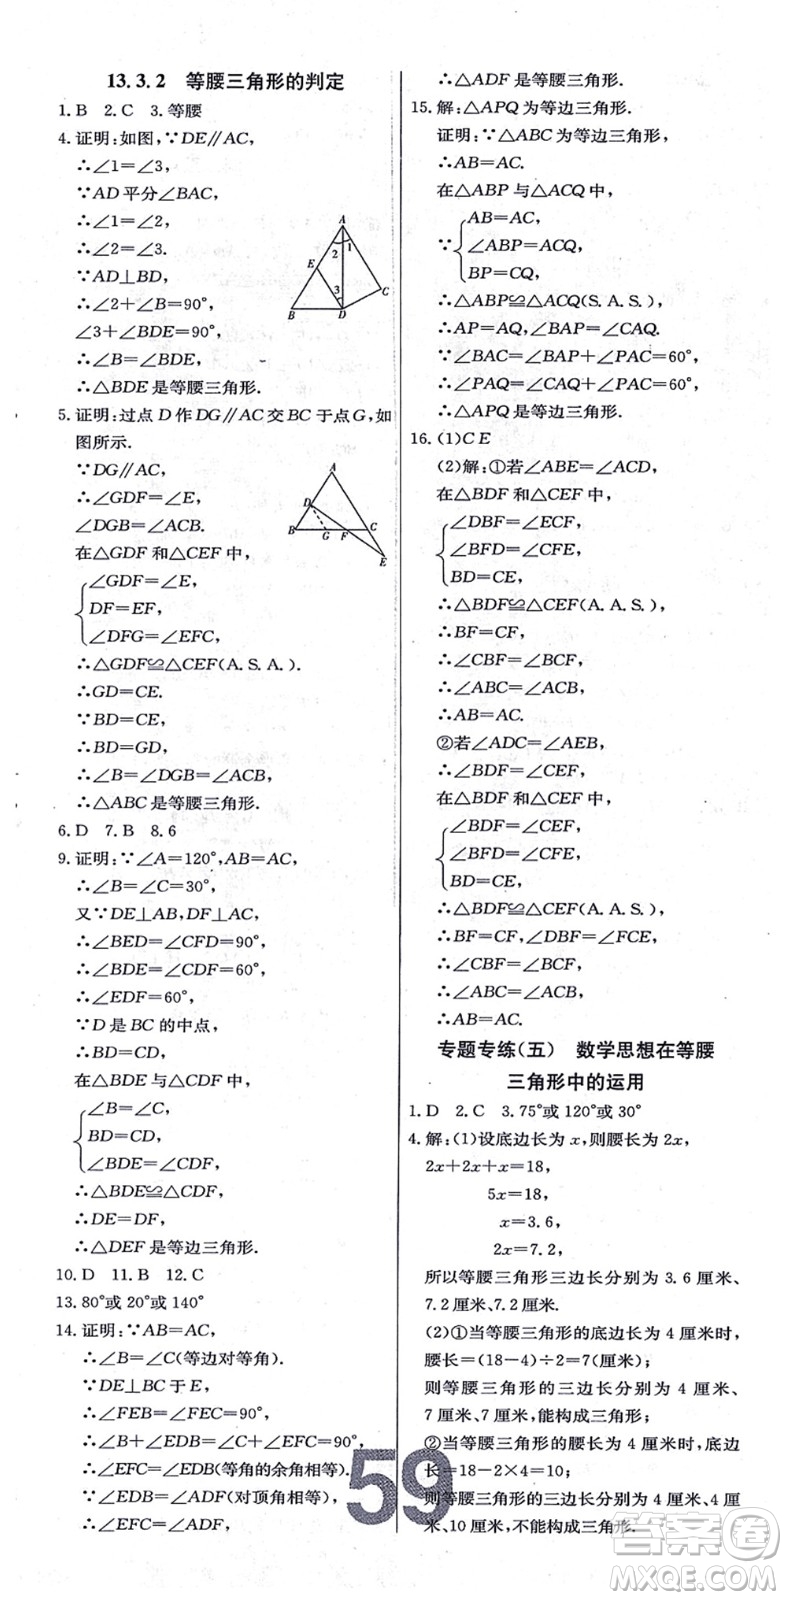 13.3.2 等腰三角形的判定
1.B 2.C 3.等腰
4.证明:如图,∵DE∥AC,
∴∠1=∠3.
∵AD平分∠BAC,
∴∠1=∠2,
∴∠2=∠3.
∵AD⊥BD,
∴∠2+∠B=90°,
∠3+∠BDE=90°,
∴∠B=∠BDE,
∴△BDE是等腰三角形.
A
2
1
E
3
C
B
D
5.证明:过点D作DG∥AC交BC于点G,如
图所示.
∵DG∥AC,
∴∠GDF=∠E,
∠DGB=∠ACB.
在△GDF和△CEF中,
∠GDF=∠E,
DF=EF,
∠DFG=∠EFC,
∴△GDF≌△CEF(A.S.A.).
∴GD=CE.
∵BD=CE,
∴BD=GD,
∴∠B=∠DGB=∠ACB,
∴△ABC是等腰三角形.
A
D
B
G
F
C
E
6.D 7.B 8.6
9.证明:∵∠A=120°,AB=AC,
∴∠B=∠C=30°,
又∵DE⊥AB,DF⊥AC,
∴∠BED=∠CFD=90°,
∴∠BDE=∠CDF=60°,
∴∠EDF=60°,
∵D是BC的中点,
∴BD=CD,
在△BDE与△CDF中,
∠B=∠C,
BD=CD,
∠BDE=∠CDF,
∴△BDE≌△CDF,
∴DE=DF,
∴△DEF是等边三角形.
10.D 11.B 12.C
13.80°或20°或140°
14.证明:∵AB=AC,
∴∠B=∠C(等边对等角).
∵DE⊥BC于E,
∴∠FEB=∠FEC=90°,
∴∠B+∠EDB=∠C+∠EFC=90°,
∴∠EFC=∠EDB(等角的余角相等).
∵∠EDB=∠ADF(对顶角相等),
∴∠EFC=∠ADF,
∴△ADF是等腰三角形.
15.解:△APQ为等边三角形.
证明:∵△ABC为等边三角形,
∴AB=AC.
在△ABP与△ACQ中,
AB=AC,
∵
∠ABP=∠ACQ,
BP=CQ,
∴△ABP≌△ACQ(S.A.S.).
∴AP=AQ,∠BAP=∠CAQ.
∵∠BAC=∠BAP+∠PAC=60°,
∴∠PAQ=∠CAQ+∠PAC=60°,
∴△APQ是等边三角形.
16.(1)C E
(2)解:①若∠ABE=∠ACD,
在△BDF和△CEF中,
∠DBF=∠ECF,
∠BFD=∠CFE,
BD=CE,
∴△BDF≌△CEF(A.A.S.),
∴BF=CF,
∴∠CBF=∠BCF,
∴∠ABC=∠ACB,
∴AB=AC.
②若∠ADC=∠AEB,
∴∠BDF=∠CEF,
在△BDF和△CEF中,
∠BDF=∠CEF,
∠BFD=∠CFE,
BD=CE,
∴△BDF≌△CEF(A.A.S.),
∴BF=CF,∠DBF=∠FCE,
∴∠CBF=∠BCF,
∴∠ABC=∠ACB,
∴AB=AC.
专题专练(五) 数学思想在等腰
三角形中的运用
1.D 2.C 3.75°或120°或30°
4.解:(1)设底边长为x,则腰长为2x,
2x+2x+x=18,
5x=18,
x=3.6,
2x=7.2,
所以等腰三角形三边长分别为3.6厘米、
7.2厘米、7.2厘米.
(2)①当等腰三角形的底边长为4厘米时,
腰长=(18-4)÷2=7(厘米);
则等腰三角形的三边长分别为4厘米、
7厘米、7厘米,能构成三角形;
②当等腰三角形的腰长为4厘米时,底边
长=18-2×4=10;
则等腰三角形的三边长分别为4厘米、4厘
米、10厘米,不能构成三角形.
59
答案圈
MXQE.COM